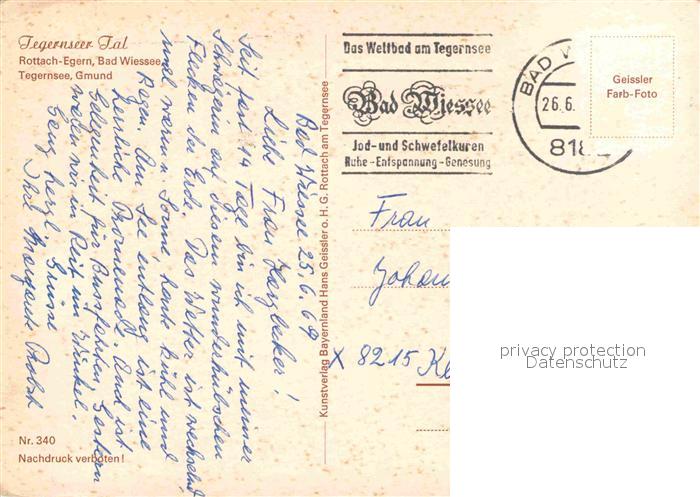 Tegernseer Tal
Rottach-Egern, Bad Wiessee,
Tegernsee, Gmund
Bad Wiessee 25.6.69
Liebe Frau Harzbecker!
Seit fast 14 Tage bin ich mit meiner
Schwägerin auf diesem wunderhübschen
Flecken der Erde. Das Wetter ist wechselnd
mal warm u. Sonne, heute kühl und
Regen. Am See entlang ist eine
herrliche Promenade. Auch ist
Gelegenheit für Busfahrten. Gestern
waren wir in Reit im Winkel.
Ganz herzl. Grüsse
Ihre Margarete
Nr. 340
Nachdruck verboten!
Kunstverlag Bayernland Hans Geissler o.H.G. Rottach am Tegernsee
Das Weltbad am Tegernsee
Bad Wiessee
Jod- und Schwefelkuren
Ruhe - Entspannung - Genesung
BAD W
26.6.
818
Geissler
Farb-Foto
Frau
Johan
X 8215 K
privacy protection
Datenschutz